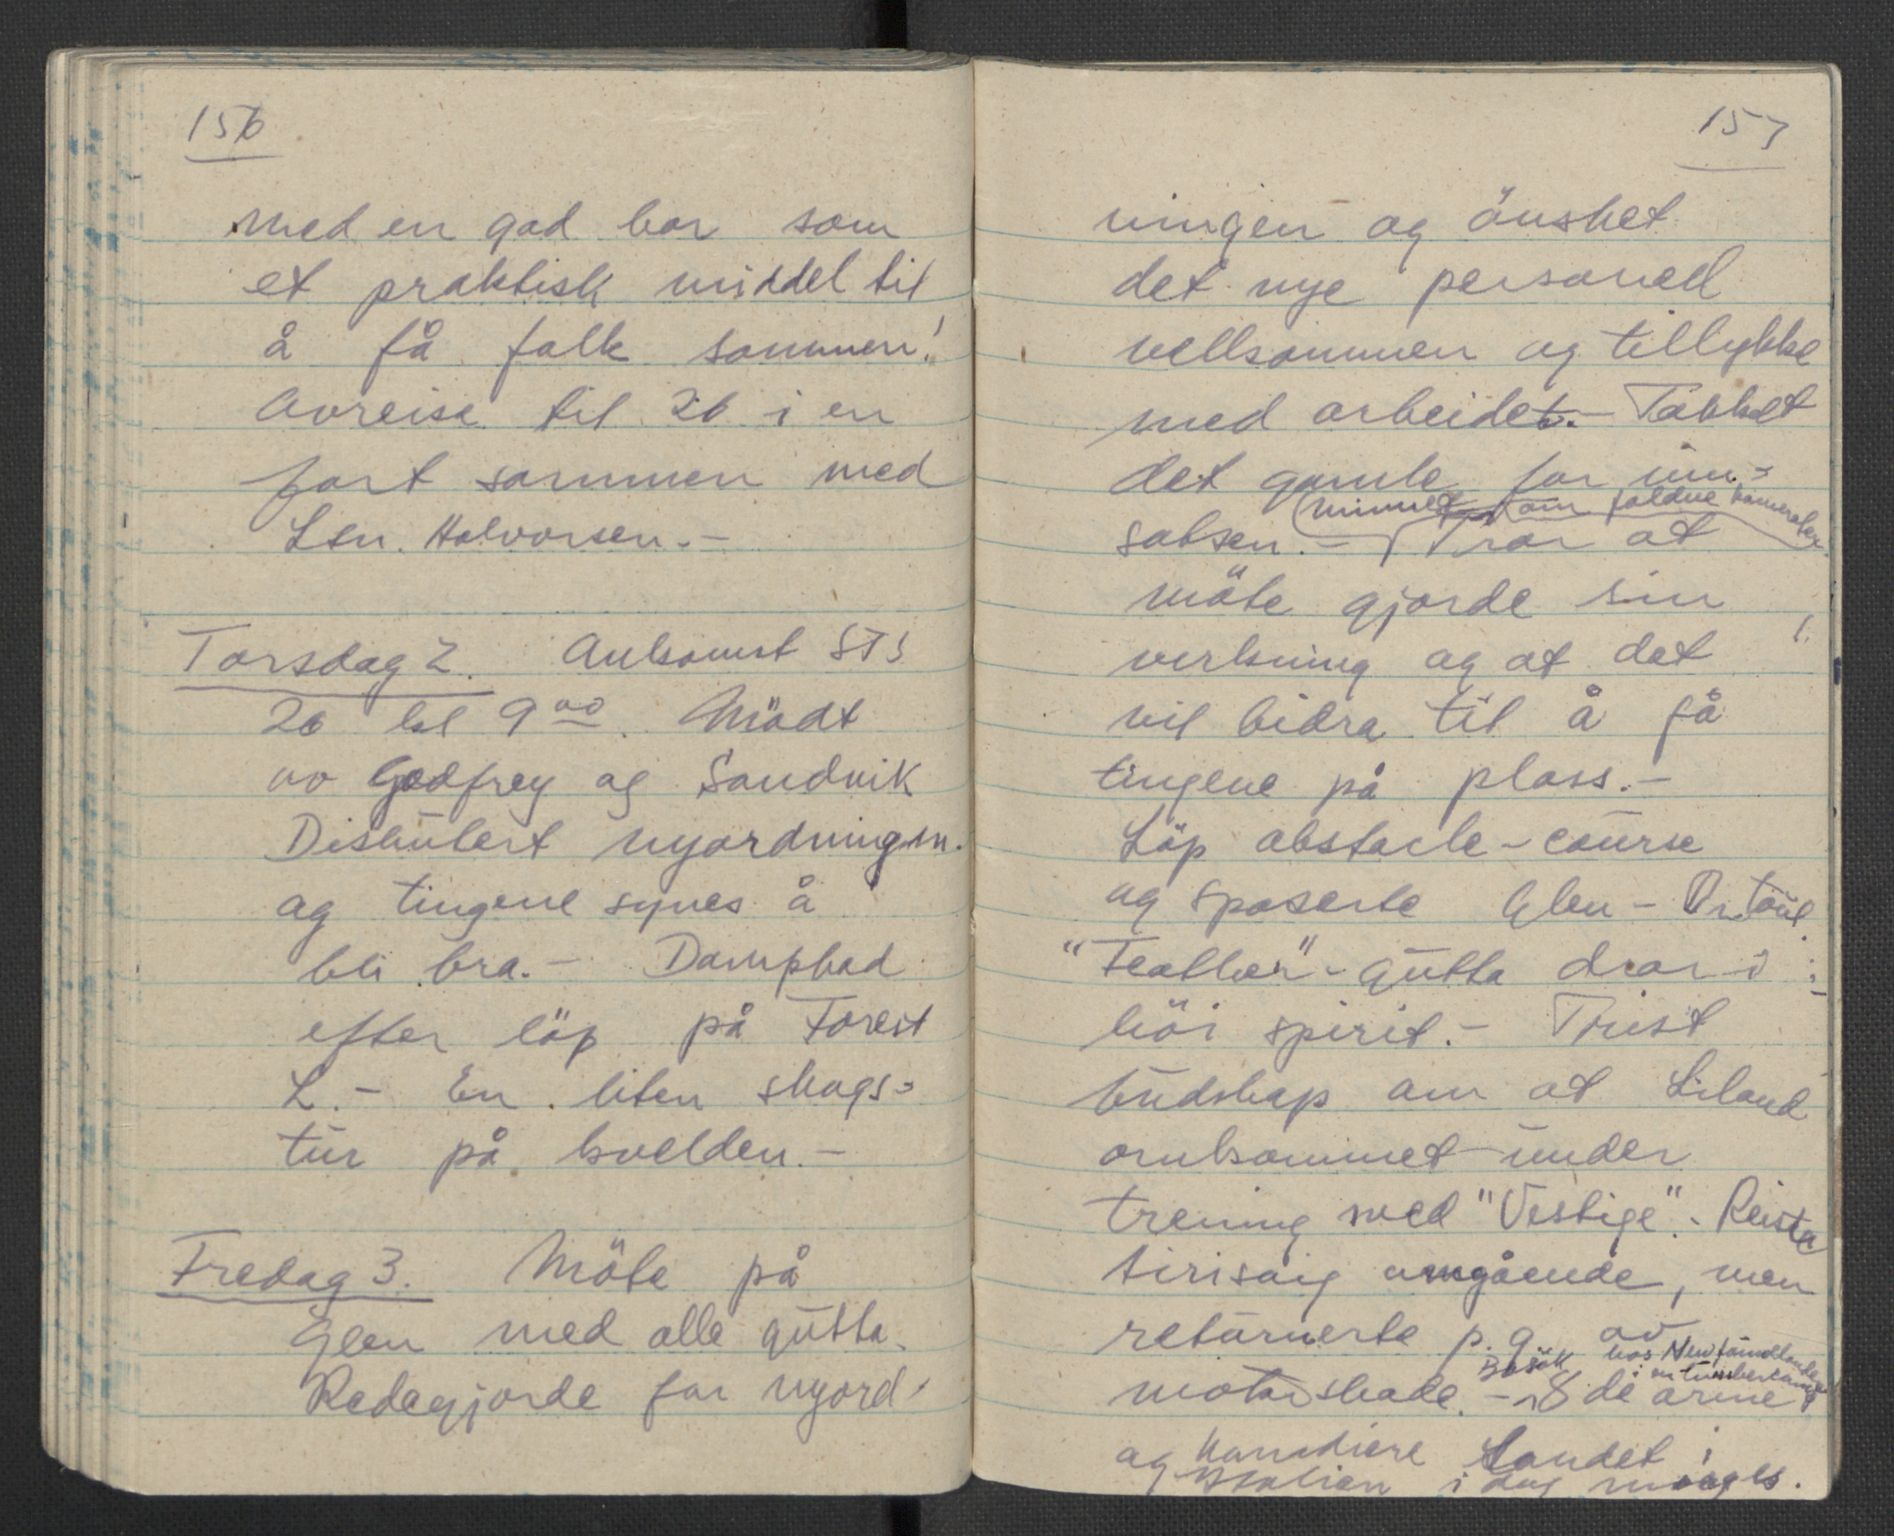 156
med en god bar som
et praktisk middel til
å få folk sammen!
Avreise til 26 i en
fart sammen med
Ltn. Halvorsen.-
Torsdag 2. Ankomst STS
26 kl 9⁰⁰. Mödt
av Godfrey og Sandvik
Diskutert nyordningen.
og tingene synes å
bli bra.- Dampbad
efter löp på Forest
L.- En liten skogs-
tur på kvelden.-
Fredag 3. Möte på
Glen med alle gutta.
Redegjorde for nyord-
157
ningen og önsket
det nye personell
vellkommen og tillykke
med arbeidet.- Takket
det gamle for inn-
(minnet om faldne kamerater.
satsen.- Tror at
möte gjorde sin
virkning og at det
vil bidra til å få
tingene på plass.-
Löp obstacle-course
og spaserte Glen-
"Feather"-gutta drar i
höi spirit.- Trist
budskap om at Liland
omkommet under
trening med "Vestige".- Reiste
omgående, men
returnerte p.g. av
motorskade. - 8de arme
Besök hos Newfoundlandere
i en timbercamp
og Kanadiere landet i
Italien i dag morges.